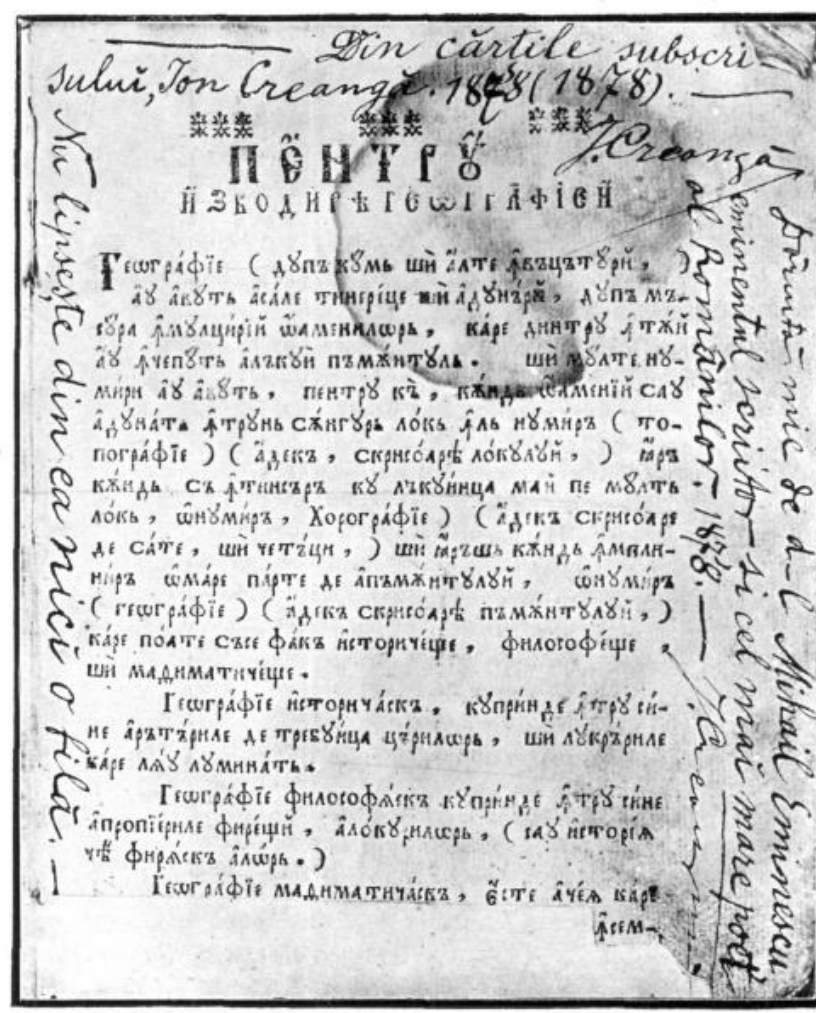 Din cărțile subscri-
sului, Ion Creangă. 1878 (1878).
J. Creangă
Nu lipsește din ea nici o filă.
Dăruită mie de d-l Mihail Eminescu
eminentul scriitor și cel mai mare poet
al Românilor. 1878.
ПЕНТРУ
ИЗВОДИРѢ ГЕѠГРАФІЕЙ
Геѡгра́фїе ( дꙋпъ кꙋмь шѝ а҆лте ꙟвъцътꙋрй , )
аꙋ а҆вꙋть а҆сале тинере́це шѝ а҆дꙋнърй , дꙋпъ мъ-
сꙋра ꙟмꙋлци́рїй ѡ҆́аменилѡрь , ка́ре динтрꙋ ꙟтѫй
а҆ꙋ ꙟчепꙋть а҆лъкꙋй пъмѫ́нтꙋль . шѝ мꙋлте нꙋ-
ми́ри а҆ꙋ а҆вꙋть , пентрꙋ къ , кѫ́ндь ѡ҆́аменїй саꙋ
а҆дꙋна́ть ꙟтрꙋнь сѫ́нгꙋрь ло́кь ꙟль нꙋми́ръ ( то-
погра́фїе ) ( а҆́декъ , скрисо́арѣ ло́кꙋлꙋй , ) ꙗ҆ръ
кѫ́ндь съ ꙟтинсъръ кꙋ лъкꙋи́нца май пе мꙋлть
ло́кь , ѡ҆нꙋми́ръ , Хорогра́фїе ) ( а҆́декъ скрисо́аре
де са́те , шѝ четъци , ) шѝ ꙗ҆ръшь кѫ́ндь ꙟмпли-
ниръ ѡ҆ма́ре па́рте де а҆пъмѫ́нтꙋлꙋй , ѡ҆нꙋми́ръ
( геѡгра́фїе ) ( а҆́декъ скрисо́арѣ пъмѫ́нтꙋлꙋй , )
ка́ре поа́те съсе фа́къ и҆сториче́ще , философе́ще ,
шѝ мадиматиче́ще .
Геѡгра́фїе и҆сторича́скъ , кꙋпри́нде ꙟтрꙋ си́-
не а҆рътъриле де требꙋи́нца църилѡрь , шѝ лꙋкръриле
ка́ре лѧꙋ лꙋмина́ть .
Геѡгра́фїе философѧ́скъ кꙋпри́нде ꙟтрꙋ си́не
а҆пропїе́риле фире́щй , а҆ло́кꙋрилѡрь , ( саꙋ и҆сторїѧ
чѣ фирѧ́скъ а҆лѡрь . )
Геѡгра́фїе мадиматича́скъ , є҆́сте а҆че́ѧ каре
ꙟсем-